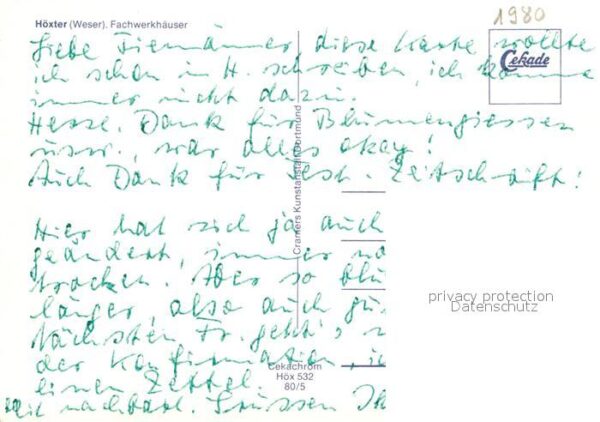 1980
Höxter (Weser). Fachwerkhäuser
Cekade
Liebe Tiemänner, diese Karte wollte
ich schon in H. schreiben, ich komme
immer nicht dazu.
Herzl. Dank für Blumengiessen
usw., war alles okay!
Auch Dank für Test-Zeitschrift!
Hier hat sich ja auch
geändert, immer no
trocken. Aber so blü
länger, also auch gu.
Nächsten Fr. geht's z
der Konfirmation, ic
einen Zettel.
Mit nachbarl. Grüssen Ih
Cramers Kunstanstalt Dortmund
Cekachrom
Höx 532
80/5
privacy protection
Datenschutz